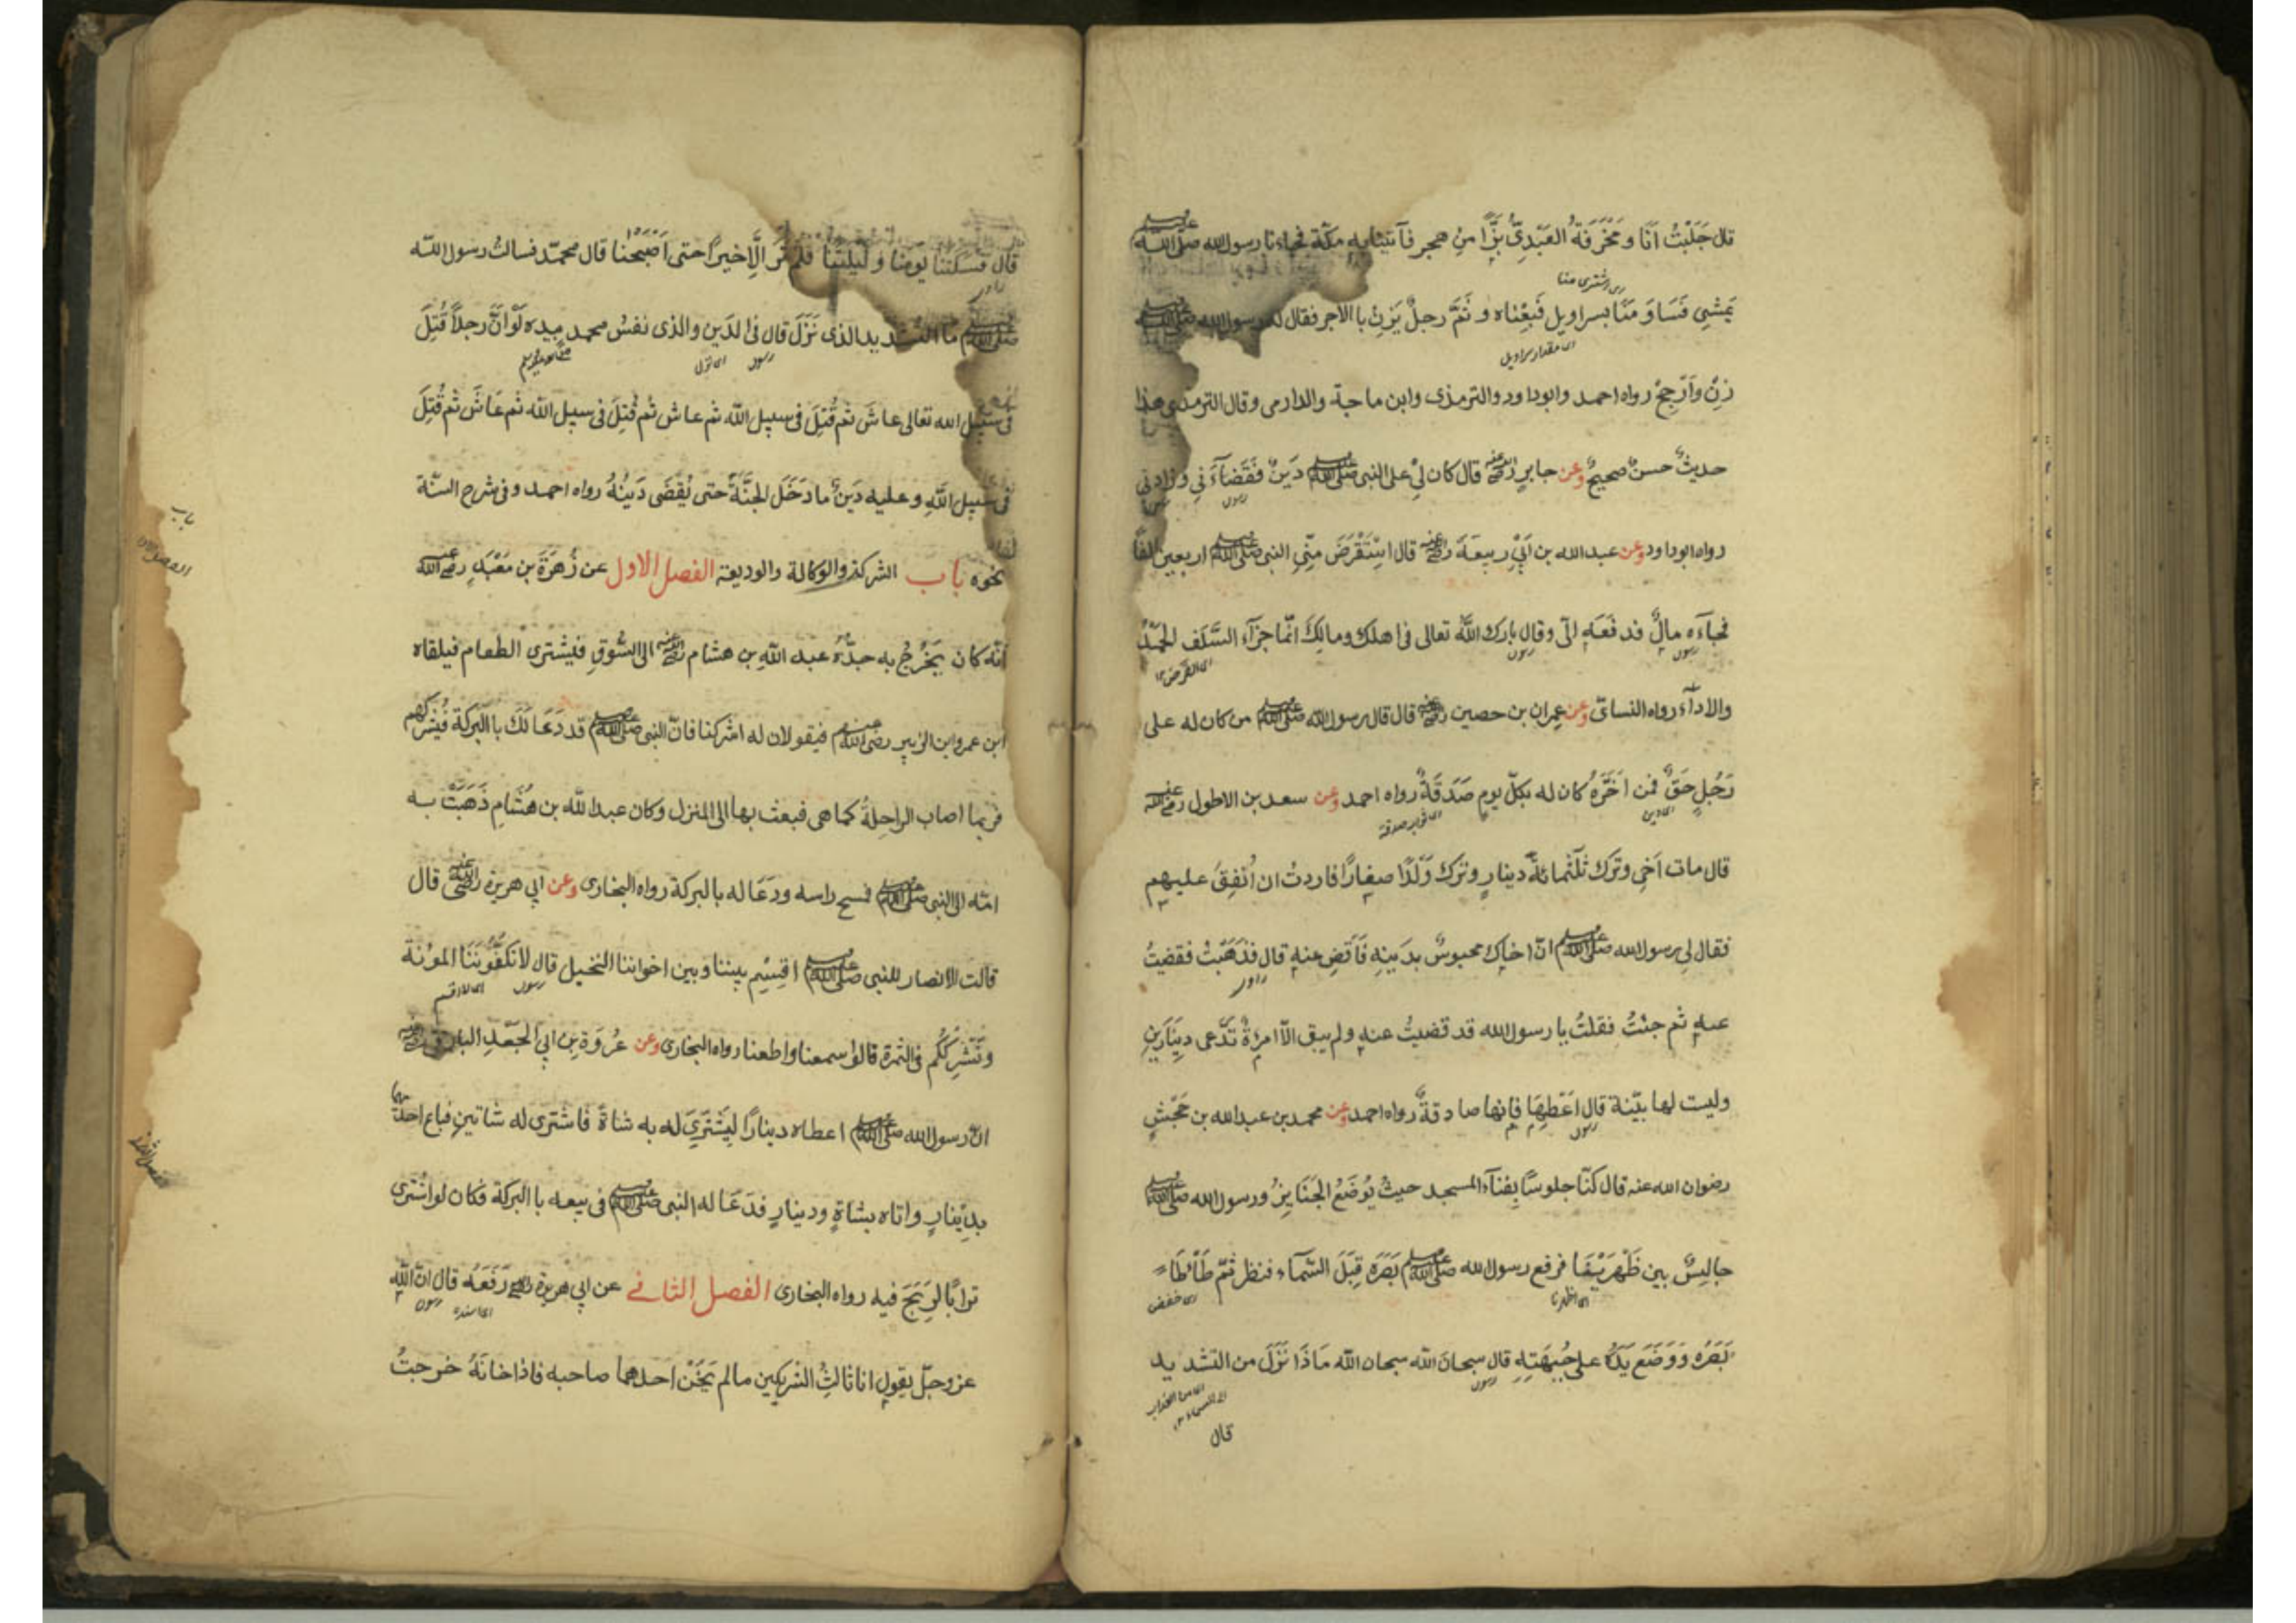 قال جَلَبْتُ اَنَا و مَخْرَفَةُ العَبْدِىُّ بَزًّا مِنْ هجر فآتينا به مكّة فجاءنا رسول الله صلى الله عليه وسلم
اى اشترى منا
يَمْشِى فَسَاوَ مَنَا بسراويل فَبِعْناه و ثَمَّ رجلٌ يَزِنُ با الاجر فقال له رسول الله صلى الله عليه وسلم
اى مقدار سراويل
زِنْ وَاَرْجِحْ رواه احمد وابوداود والترمذى وابن ماجة والدارمى وقال الترمذى هذا
حديثٌ حسنٌ صحيحٌ وعن جابرٍ رضى الله عنه قال كان لِىْ على النبى صلى الله عليه وسلم دَيْنٌ فَقَضَآءَنِى وَزادنى
رسول
رواه ابوداود وعن عبدالله بن اَبِىْ ربيعَةَ رضى الله عنه قال اسْتَقْرَضَ مِنِّى النبى صلى الله عليه وسلم اربعين الفًا
فجآءه مالٌ فدفَعَه الىّ وقال بارك اللهُ تعالى فى اهلك ومالِكَ انّما جزآء السَّلَفِ الحَمْدُ
رسول رسول اى القرض ١٢
والادآء رواه النسائى وعن عِمران بن حصين رضى الله عنه قال قال رسول الله صلى الله عليه وسلم من كان له على
رَجُلٍ حَقٌّ فمن اَخَّرَهُ كان له بكلّ يومٍ صَدَقَةٌ رواه احمد وعن سعد بن الاطول رضى الله عنه
اى دين اى ثواب صدقة
قال مات اَخِى وترك ثلٰثمائةَ دينارٍ وترك وَلَدًا صغارًا فاردتُ ان اُنْفِقَ عليهم
فقال لِى رسول الله صلى الله عليه وسلم انّ اخاك محبوسٌ بدَينِهِ فَاَقْضِ عنه قال فذَهَبْتُ فقضيتُ
راوى
عنه ثم جئتُ فقلتُ يا رسول الله قد قضيتُ عنه ولم يبق الاّ امرءةٌ تدَّعى دينَارَينِ
وليست لها بيّنة قال اَعْطِهَا فانها صادقةٌ رواه احمد وعن محمد بن عبدالله بن جَحْشٍ
رسول
رضوان الله عنه قال كنّا جلوسًا بِفنآء المسجد حيثُ يُوضَعُ الجَنَايِزُ ورسول الله صلى الله عليه وسلم
جالِسٌ بين ظَهْرَيْنَا فرفع رسول الله صلى الله عليه وسلم بَصَرَه قِبَلَ السّمآء فنظر ثمّ طَأْطَاءَ
اى اظهرنا اى خفض
بَصَرَه وَوَضَعَ يَدَهُ على جُبهَتِه قال سبحانَ الله سبحان الله مَاذَا نَزَلَ من التشديد
رسول اى من العذاب
قال
قال فَسَكَتْنا يَومَنا و لَيلَتَنَا فلم نَرَ الاّ خيرًا حتى اَصْبَحْنا قال محمّد فسالتُ رسول الله
راوى
صلى الله عليه وسلم ما التشديد الذى نَزَلَ قال فى الدَيْنِ والذى نفسُ محمد بيده لَوْ اَنَّ رجلاً قُتِلَ
رسول اى نزل
فى سبيل الله تعالى عاشَ ثم قُتِلَ فى سبيل الله ثم عاش ثم قُتِلَ فى سبيل الله ثم عَاشَ ثم قُتِلَ
فى سبيل اللهِ وعليه دَينٌ ما دَخَل الجنَّةَ حتى يُقْضَى دَينُهُ رواه احمد وفى شرح السنّة
نحوه باب الشركة والوكالة والوديعة الفصل الاول عن زُهْرَةَ بن مَعْبَدٍ رضى الله عنه
باب
الفصل الاول
انّه كان يَخْرُجُ به جدُّهُ عبد اللهِ بن هشام رضى الله عنه الى السُّوقِ فيشترى الطعام فيلقاه
ابن عمر وابن الزبير رضى الله عنهم فيقولان له اشركنا فانّ النبى صلى الله عليه وسلم قد دَعَا لَكَ با البركة فَيُشْرِكُهم
فربما اصاب الراحِلةَ كما هى فبعث بها الى المنزل وكان عبدالله بن هشام ذَهَبَتْ به
امّه الى النبى صلى الله عليه وسلم فمسح راسه ودعَا له بالبركة رواه البخارى وعن اَبِى هريرة رضى الله عنه قال
قالت الانصار للنبى صلى الله عليه وسلم اقسِم بيننا وبين اخواننا النخيل قال لا تكفُونَنَا المؤنة
رسول اى لا اقسم
ونُشْرِكُكُم فى الثمرة قالوا سمعنا واطعنا رواه البخارى وعن عُروَة بن ابى الجَعْدِ البارقى رضى الله عنه
انّ رسول الله صلى الله عليه وسلم اعطاه دينارًا لِيَشْتَرِىَ له به شاةً فاشترى له شاتينِ فباع احدٰهما
الفصل الثانى
بدِينارٍ واتاه بشاةٍ ودينارٍ فدَعَا له النبى صلى الله عليه وسلم فى بيعه با البركة فكان لو اشْتَرى
ترابًا لرَبِحَ فيه رواه البخارى الفصل الثانى عن ابى هريرة رضى الله عنه رَفَعَه قال انّ الله
اى اسنده رسول
عز وجلّ يقول انا ثالثُ الشريكين ما لم يَخُنْ احدهما صاحبه فاذا خَانَهُ خرجتُ